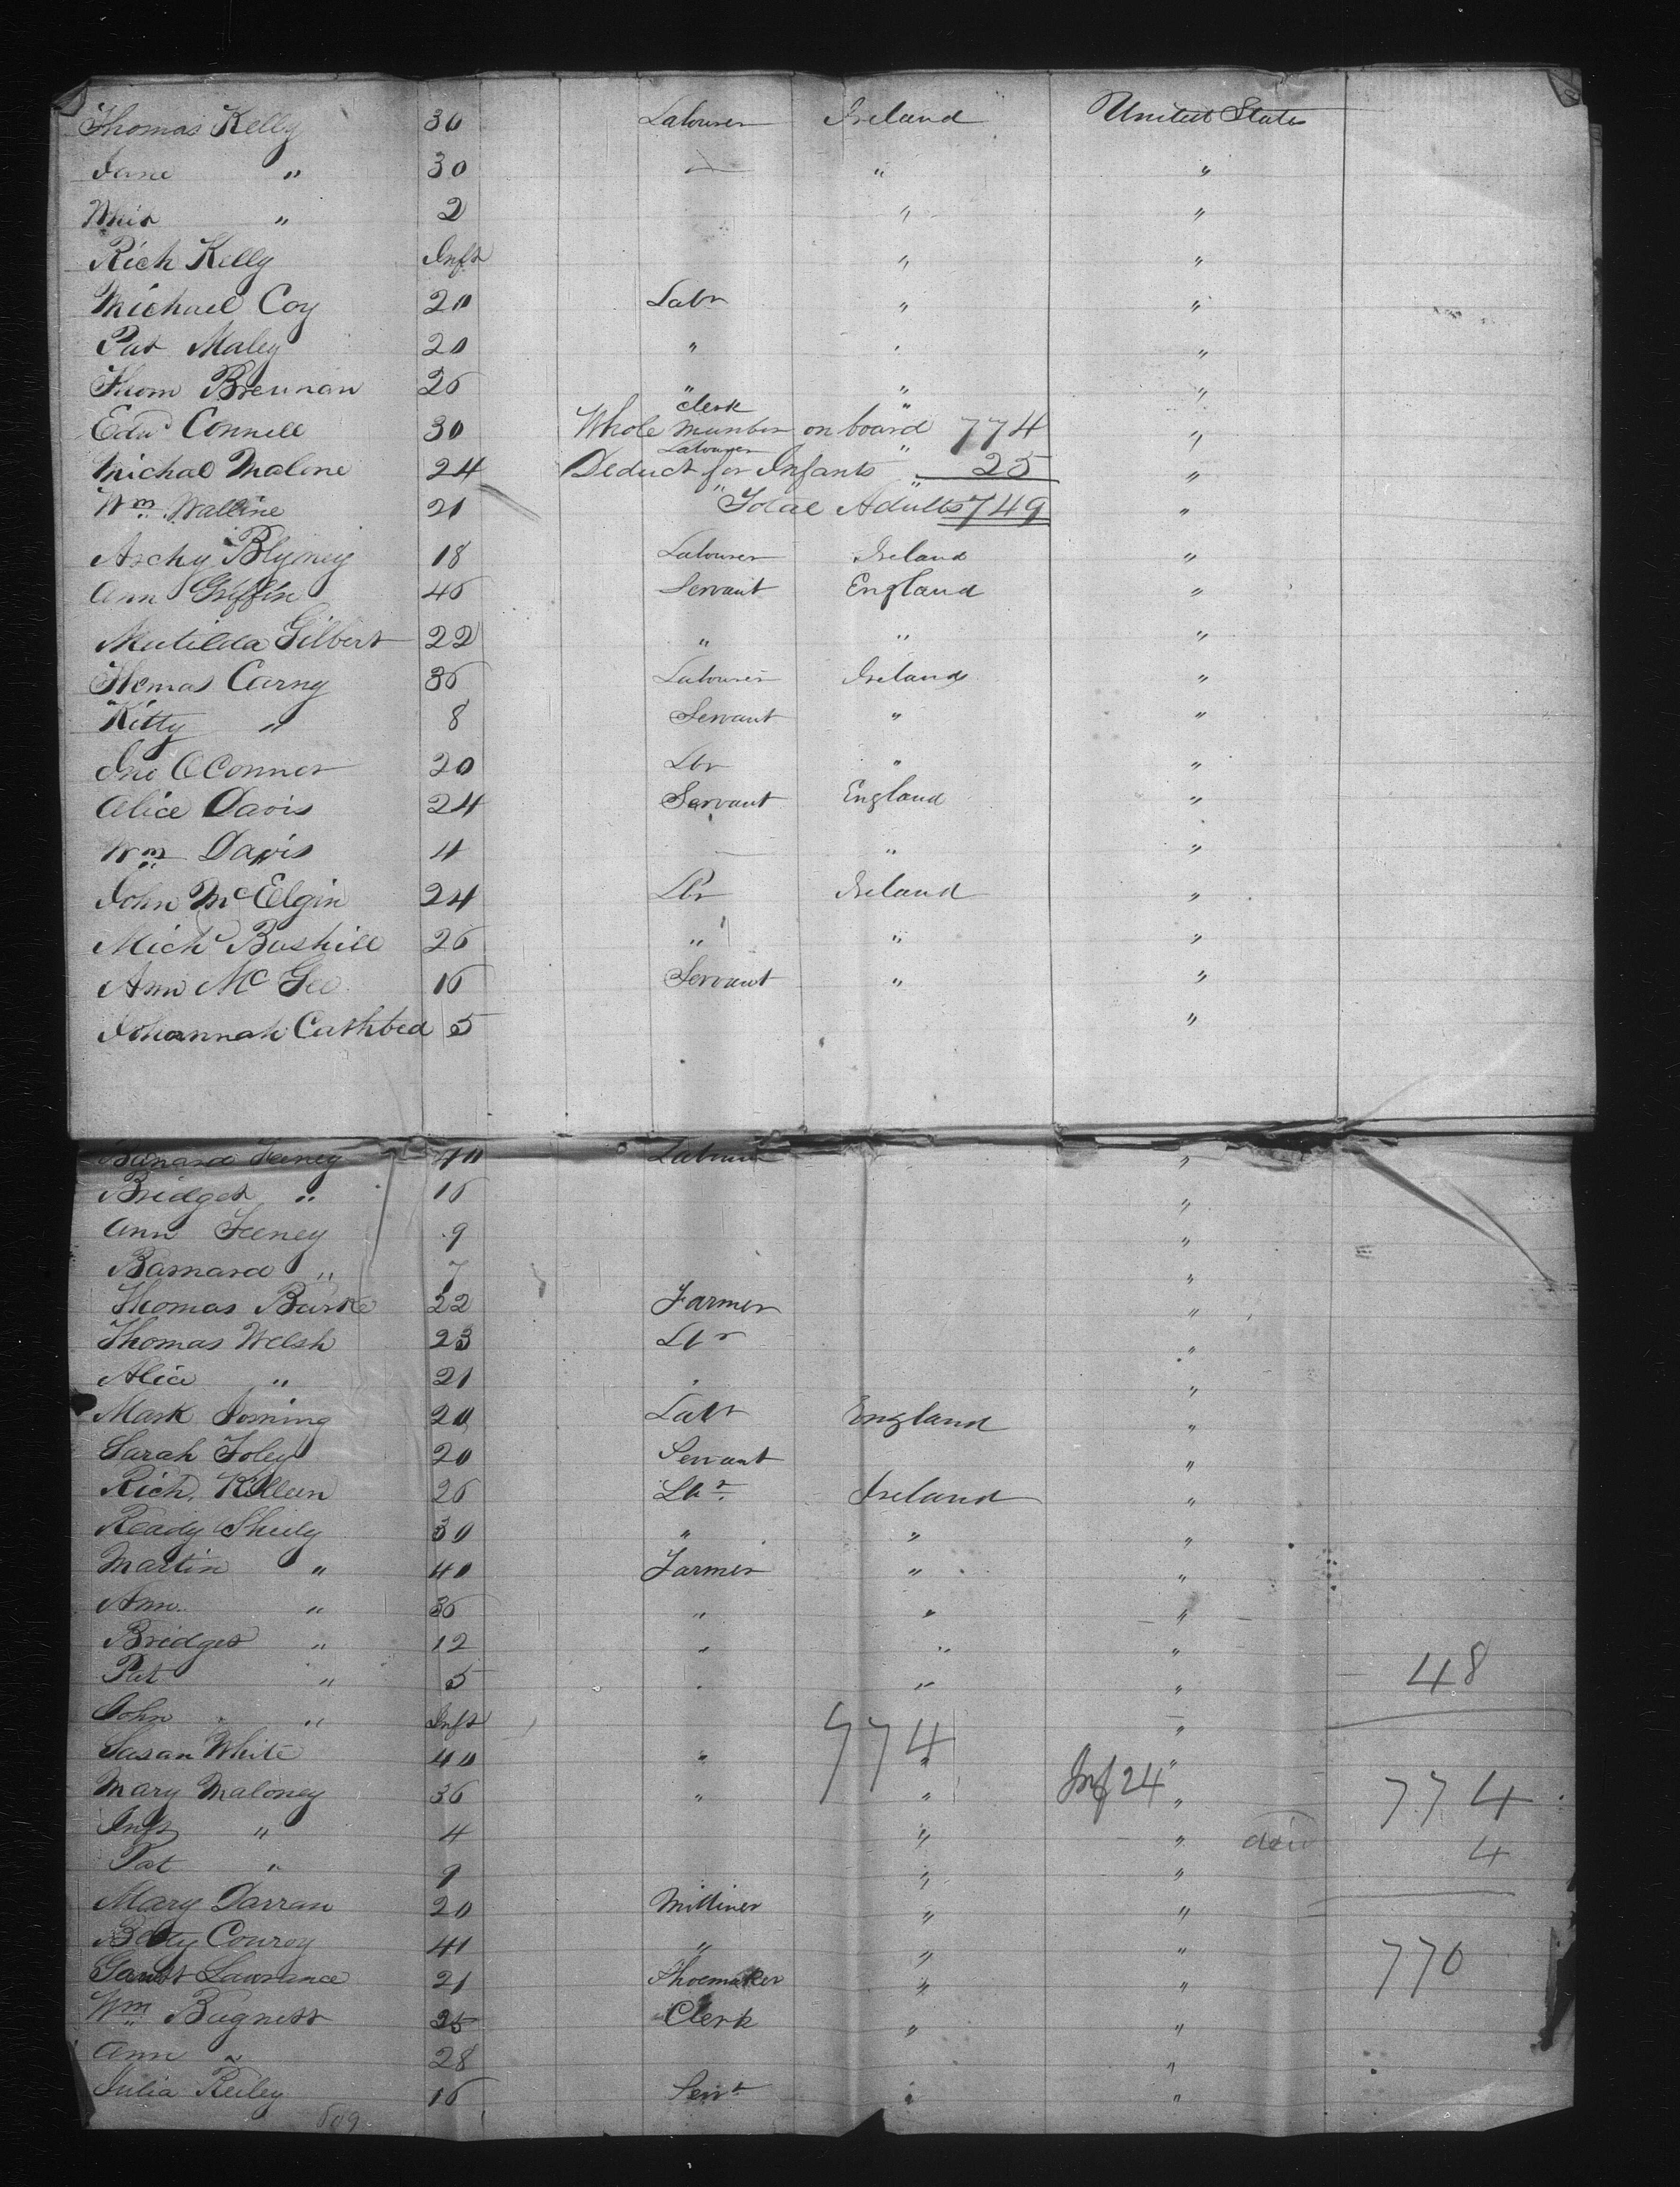 Thomas Kelly 30 Labourer Ireland United States
Jane " 30 — " "
" 2 " "
Rich Kelly Inft " "
Michael Coy 20 Labr " "
Pat Maley 20 " " "
Thom Brennan 26 " " "
Edwd Connell 30 clerk " "
Whole number on board 774
Michal Malone 24 Labourer " "
Deduct for Infants 25
Wm Walline 21 " " "
Total Adults 749
Archy Blyney 18 Labourer Ireland "
Ann Griffin 46 Servant England "
Matilda Gilbert 22 " " "
Thomas Carny 36 Labourer Ireland "
Kitty " 8 Servant " "
Jno OConnor 20 Lbr " "
Alice Davis 24 Servant England "
Wm Davis 4 — " "
John McElgin 24 Lbr Ireland "
Michl Bushill 26 " " "
Ann McGee 16 Servant " "
Johannah Cuthbed 5 "
Barnard Feeney 40 Labourer "
Bridget " 16 "
Ann Feeney 9 "
Barnard " 7 "
Thomas Burke 22 Farmer "
Thomas Welsh 23 Lbr "
Alice " 21 "
Mark 20 Labr England "
Sarah Foley 20 Servant "
Rich. Killeen 26 Lbr. Ireland "
Ready Sheely 30 " " "
Martin " 40 Farmer " "
Ann " 36 " " "
Bridget " 12 " " "
Pat " 5 " " " 48
John " Inft "
Susan White 40 " " "
774
Mary Maloney 36 " " " Inf 24 774
Inft " 4 " " 4
Pat " 9 " "
Mary Darran 20 Milliner " "
Betty Conroy 41 " " " 770
Garrett Lawrence 21 Shoemaker " "
Wm Bugness 25 Clerk " "
Ann " 28 "
Julia Reiley 16 Servt " "
809